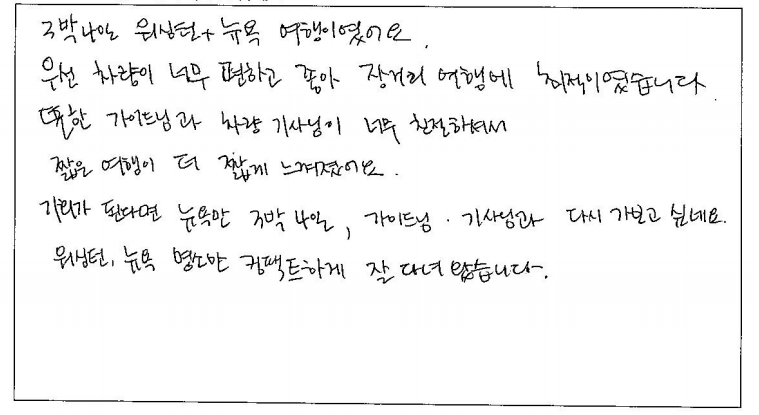 3박4일 워싱턴+뉴욕 여행이였어요.
우선 차량이 너무 편하고 좋아 장거리 여행에 최적이였습니다.
또한 가이드님과 차량 기사님이 너무 친절하셔서
짧은 여행이 더 짧게 느껴졌어요.
기회가 된다면 뉴욕만 3박 4일, 가이드님·기사님과 다시 가보고 싶네요.
워싱턴, 뉴욕 명소만 컴팩트하게 잘 다녀 왔습니다.